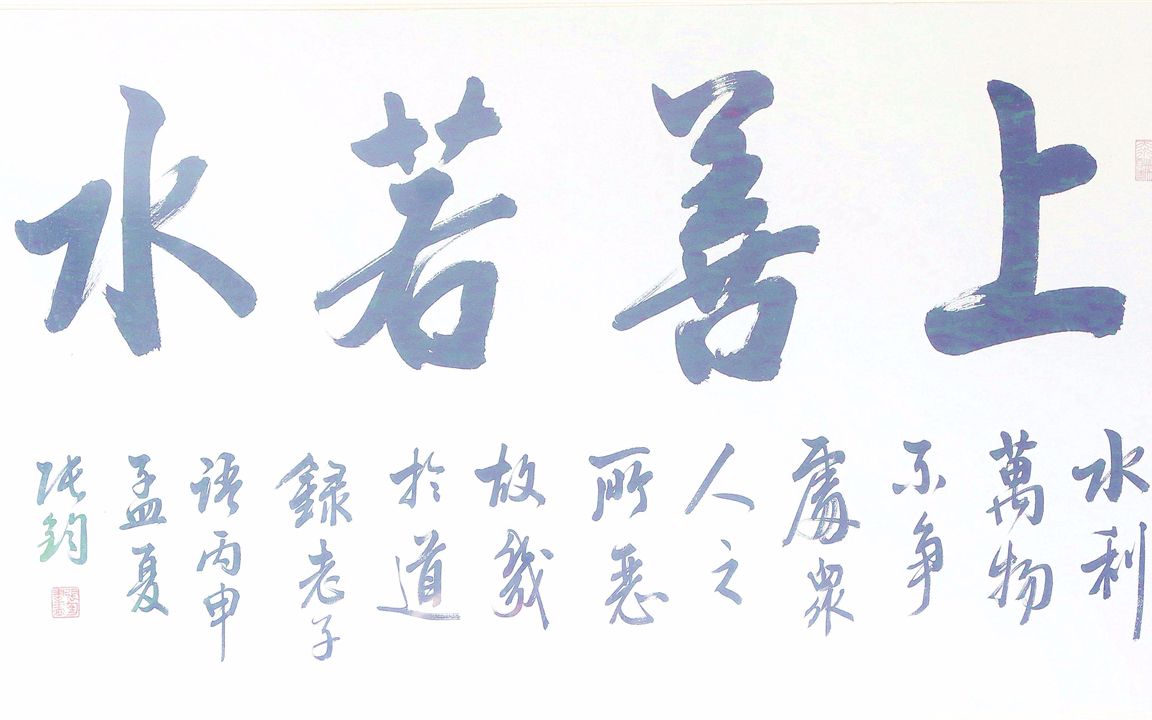 上善若水
水利
萬物
不争
處衆
人之
所惡
故幾
於道
録老子
語丙申
孟夏
张鈞